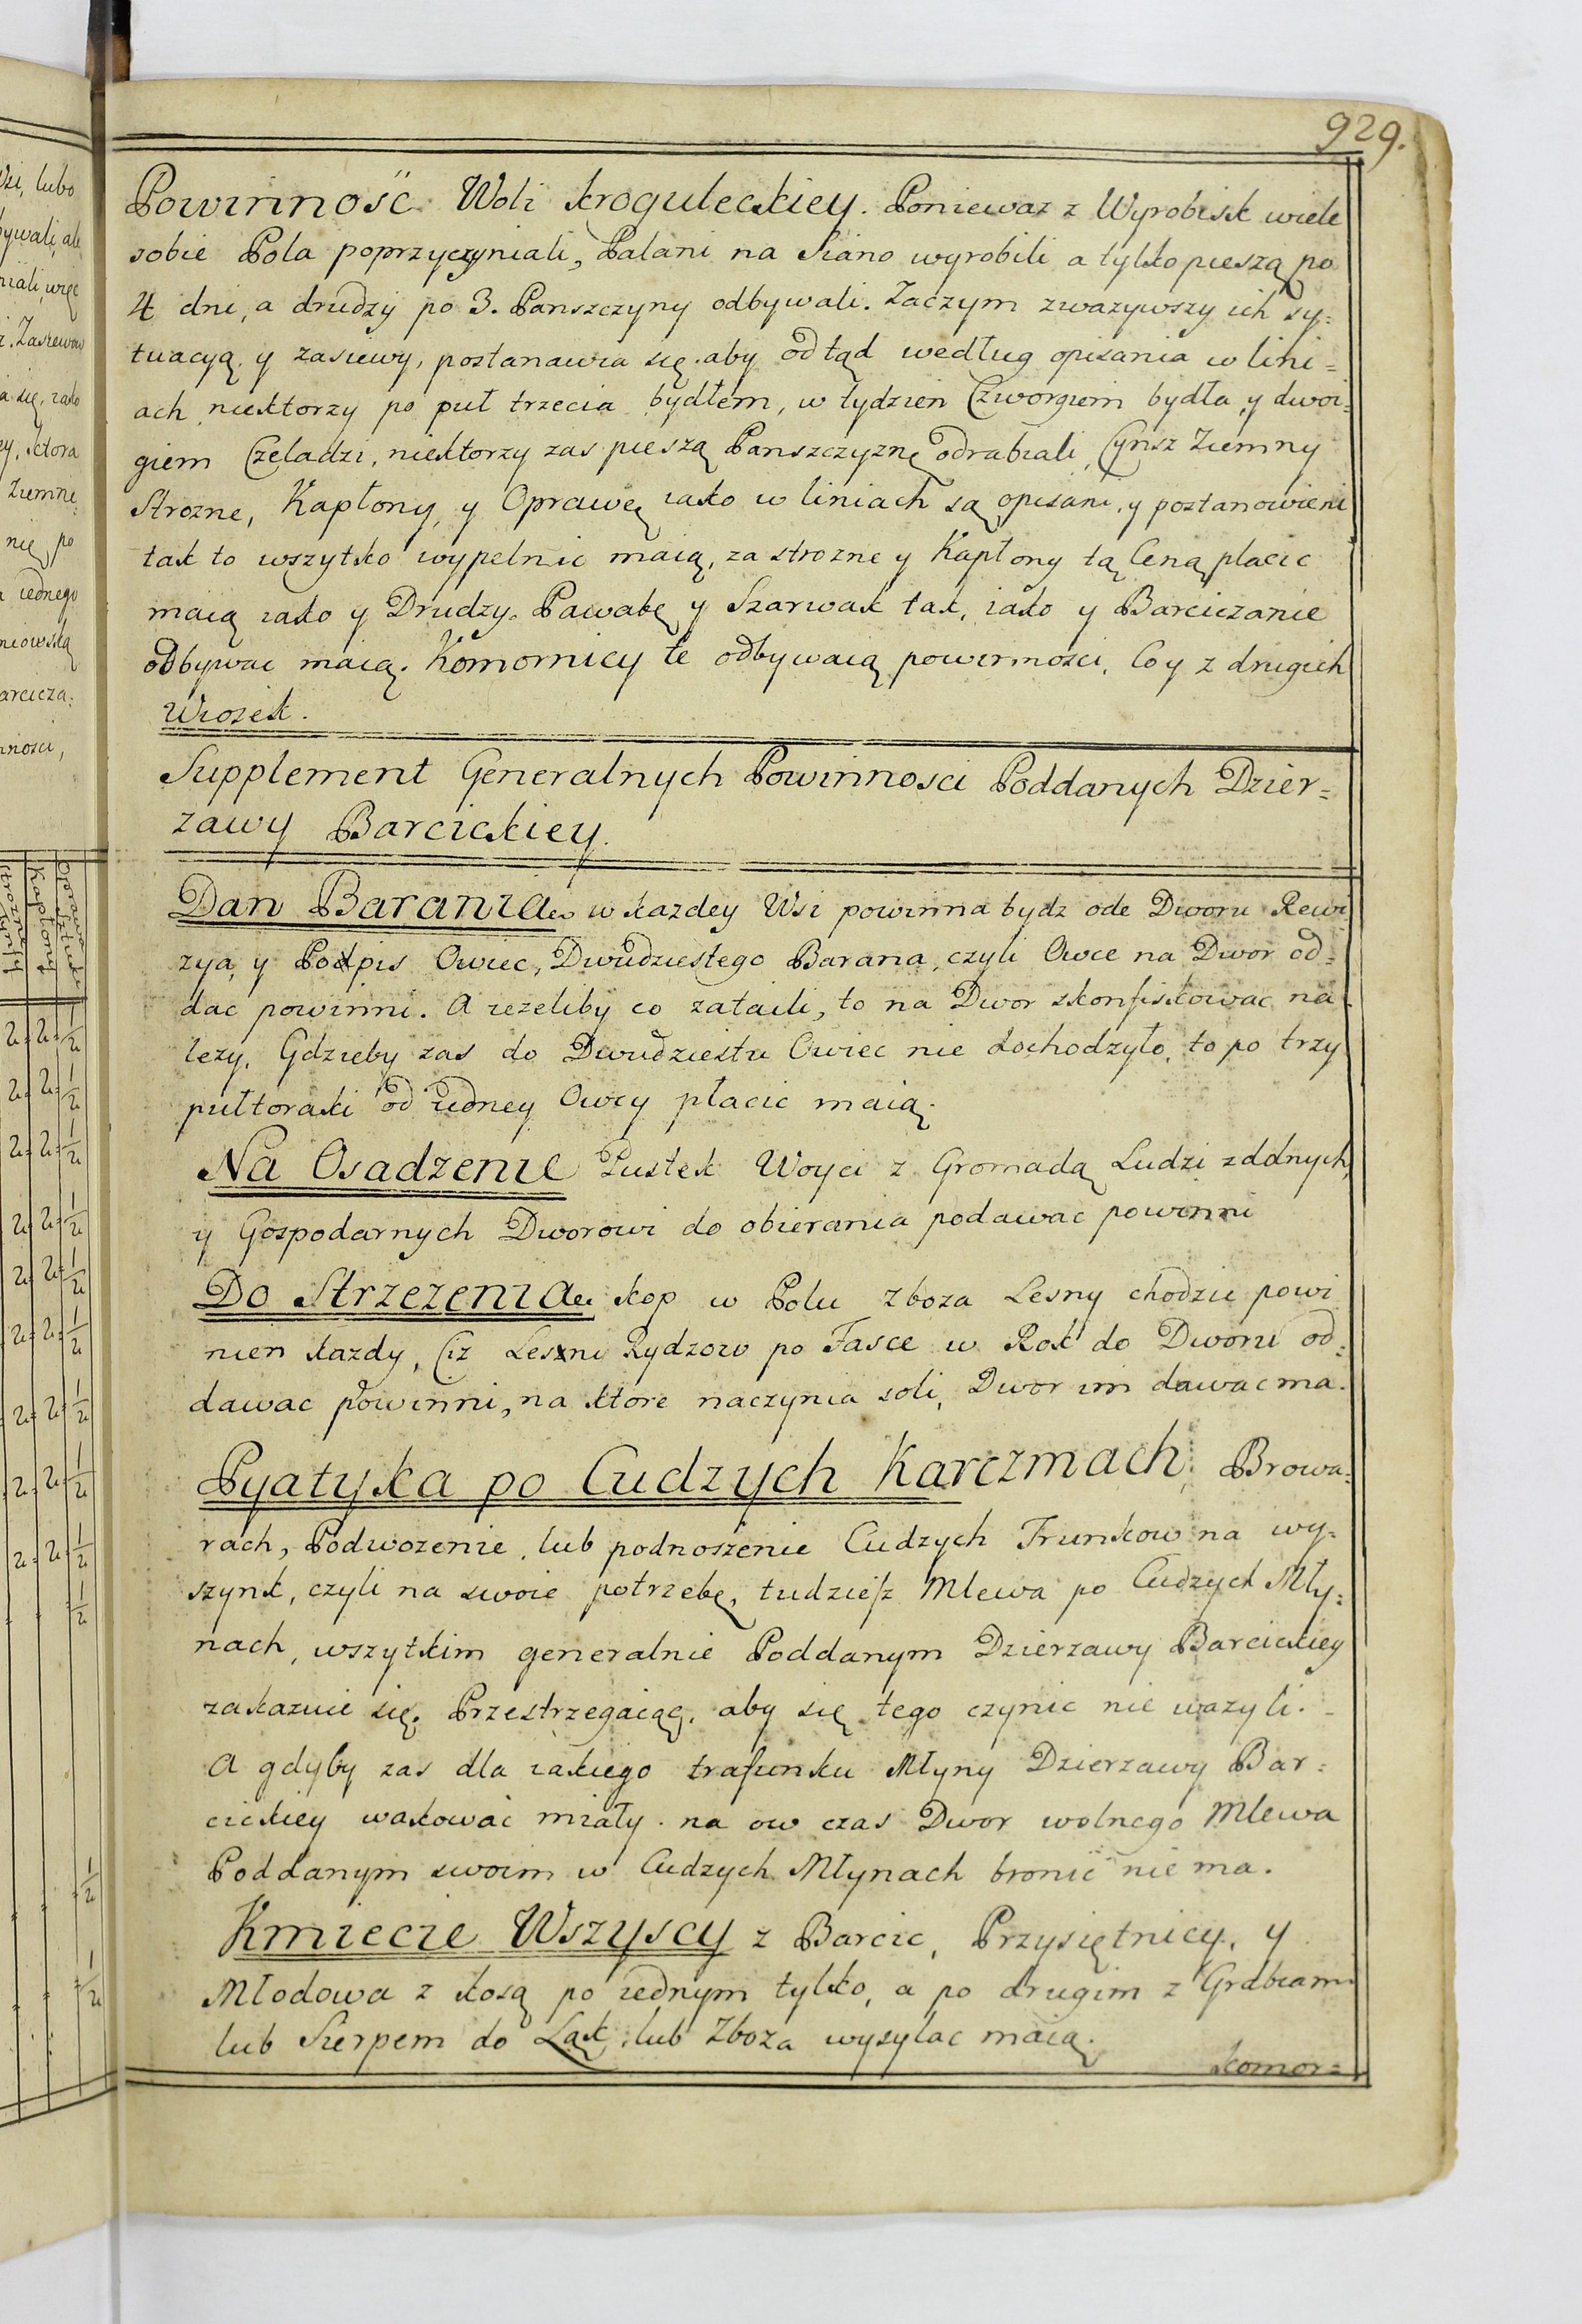 929.
Powinność Woli kroguleckiey. Poniewaz z Wyrobisk wiele
sobie Pola poprzyczyniali, Palani na Siano wyrobili a tylko pieszą po
4 dni, a drudzy po 3. Panszczyny odbywali. Zaczym zwazywszy ich sy=
tuacyą, y zasiewy, postanawia się aby odtąd według opisania w lini=
ach niektorzy po puł trzecia bydłem, w tydzien Czworgiem bydła, y dwoi=
giem Czeladzi, niektorzy zas pieszą Panszczyznę odrabiali, Cynsz Ziemny
Strozne, Kapłony, y Oprawę iako w liniach są opisani, y postanowieni
tak to wszytko wypelnic maią, za strozne y Kapłony tą Ceną placic
maią iako y Drudzy. Pawabę y Szarwak tak, iako y Barciczanie
odbywac maią. Komornicy te odbywaią powinnosci, Co y z drugich
Wiosek.
Supplement Generalnych Powinnosci Poddanych Dzier=
zawy Barcickiey.
Dan Barania w kazdey Wsi powinna bydz ode Dworu Rewi
zya, y Podpis Owiec, Dwudziestego Barana, czyli Owce na Dwor od=
dac powinni. A iezeliby co zataili, to na Dwor skonfiskowac na
lezy. Gdzieby zas do Dwudziestu Owiec nie dochodzyło, to po trzy
pułtoraki od iedney Owcy płacic maią.
Na Osadzenie Pustek Woyci z Gromadą Ludzi zddnych,
y Gospodarnych Dworowi do obierania podawac powinni
Do Strzezenia kop w Polu zboza Lesny chodzic powi
nien kazdy, Ciz Lesni Rydzow po Fasce w Rok do Dworu od=
dawac powinni, na ktore naczynia soli, Dwor im dawac ma.
Pyatyka po Cudzych Karczmach, Browa=
rach, Podwozenie, lub podnoszenie Cudzych Trunkow na wy=
szynk, czyli na swoie potrzebę, tudziesz Mlewa po Cudzych Mły=
nach, wszytkim generalnie Poddanym Dzierzawy Barcickiey
zakazuie się. Przestrzegaiąc, aby się tego czynic nie wazyli.
A gdyby zas dla iakiego trafunku Młyny Dzierzawy Bar=
cickiey wakowac miały. na ow czas Dwor wolnego Mlewa
Poddanym swoim w Cudzych Młynach bronic nie ma.
Kmiecie Wszyscy z Barcic, Przysiętnicy, y
Młodowa z kosą po iednym tylko, a po drugim z Grabiami
lub Sierpem do Ląk, lub Zboza wysylac maią.
komor=